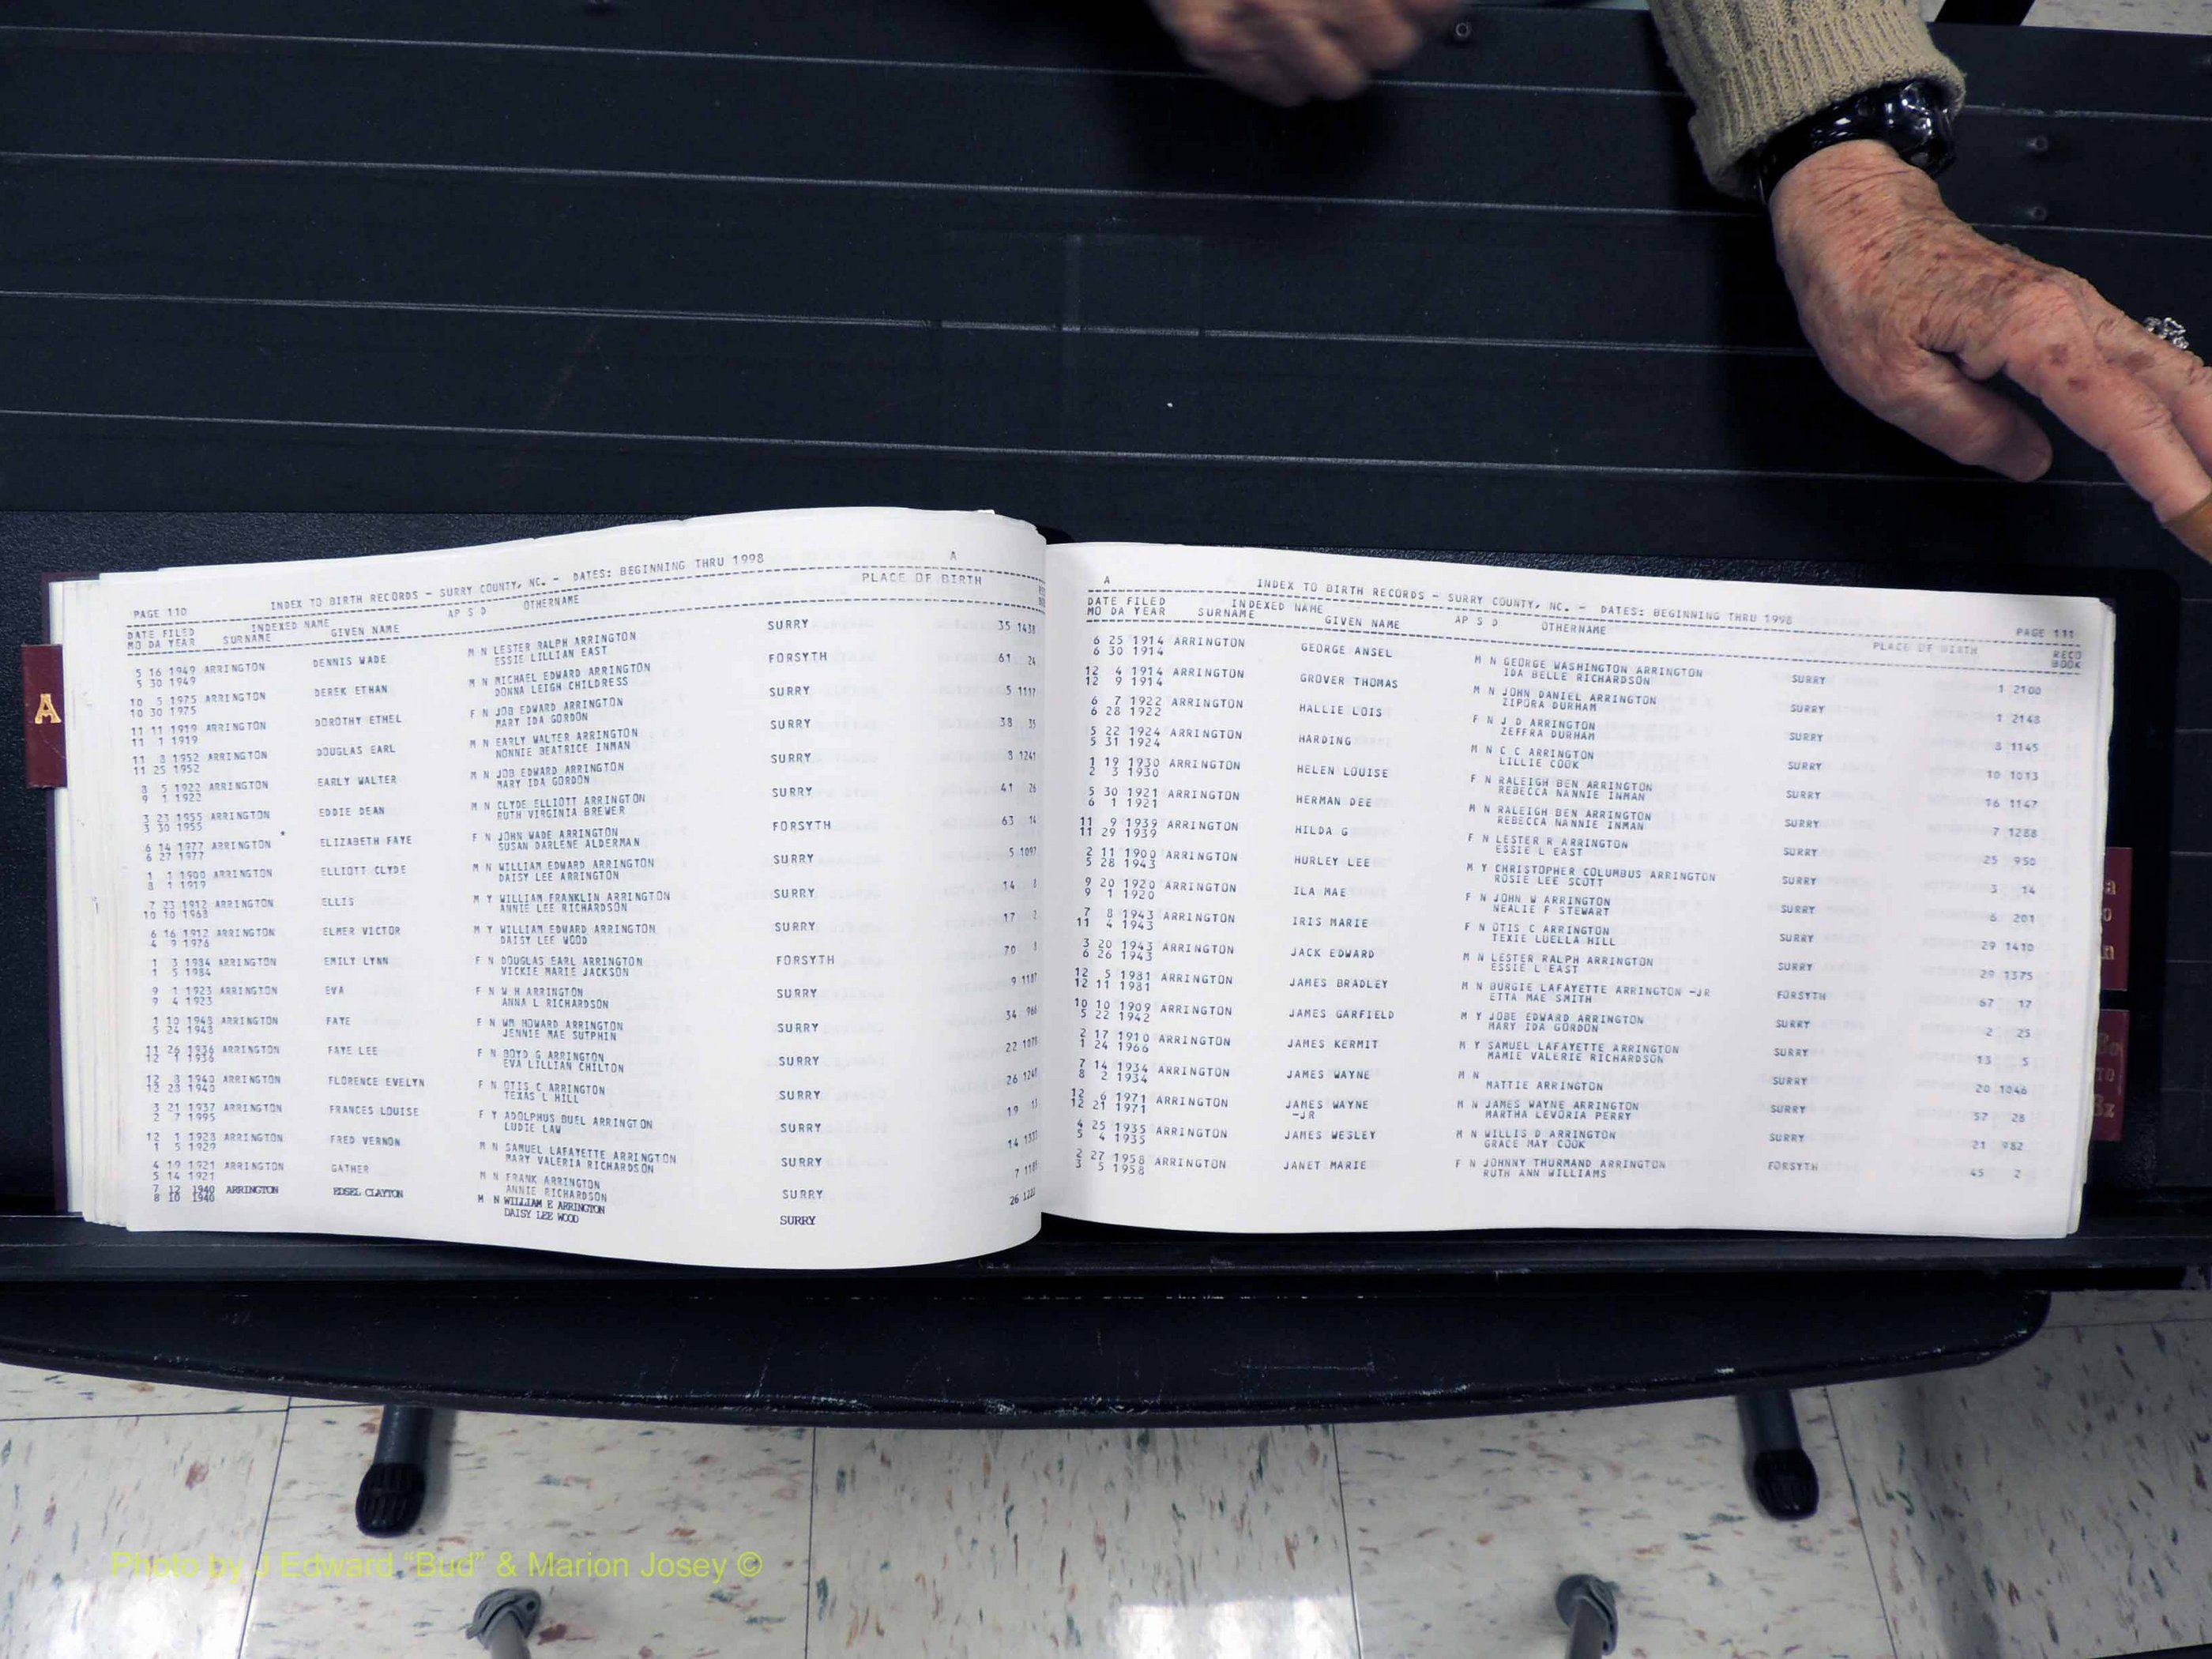 PAGE 110 INDEX TO BIRTH RECORDS - SURRY COUNTY, NC. - DATES: BEGINNING THRU 1998 A
DATE FILED INDEXED NAME AP S D OTHERNAME PLACE OF BIRTH
MO DA YEAR SURNAME GIVEN NAME
5 16 1949 ARRINGTON DENNIS WADE M N LESTER RALPH ARRINGTON SURRY 35 1438
5 30 1949 ESSIE LILLIAN EAST
10 5 1975 ARRINGTON DEREK ETHAN M N MICHAEL EDWARD ARRINGTON FORSYTH 61 24
10 30 1975 DONNA LEIGH CHILDRESS
11 11 1919 ARRINGTON DOROTHY ETHEL F N JOB EDWARD ARRINGTON SURRY 5 1117
11 1 1919 MARY IDA GORDON
11 8 1952 ARRINGTON DOUGLAS EARL M N EARLY WALTER ARRINGTON SURRY 38 35
11 25 1952 NONNIE BEATRICE INMAN
8 5 1922 ARRINGTON EARLY WALTER M N JOB EDWARD ARRINGTON SURRY 8 1241
9 1 1922 MARY IDA GORDON
3 23 1955 ARRINGTON EDDIE DEAN M N CLYDE ELLIOTT ARRINGTON SURRY 41 26
3 30 1955 RUTH VIRGINIA BREWER
6 14 1977 ARRINGTON ELIZABETH FAYE F N JOHN WADE ARRINGTON FORSYTH 63 14
6 27 1977 SUSAN DARLENE ALDERMAN
1 1 1900 ARRINGTON ELLIOTT CLYDE M N WILLIAM EDWARD ARRINGTON SURRY 5 1097
8 1 1919 DAISY LEE ARRINGTON
7 23 1912 ARRINGTON ELLIS M Y WILLIAM FRANKLIN ARRINGTON SURRY 14
10 10 1968 ANNIE LEE RICHARDSON
6 16 1912 ARRINGTON ELMER VICTOR M Y WILLIAM EDWARD ARRINGTON SURRY 17
4 9 1976 DAISY LEE WOOD
1 3 1984 ARRINGTON EMILY LYNN F N DOUGLAS EARL ARRINGTON FORSYTH 70
1 5 1984 VICKIE MARIE JACKSON
9 1 1923 ARRINGTON EVA F N W H ARRINGTON SURRY 9 1187
9 4 1923 ANNA L RICHARDSON
1 10 1948 ARRINGTON FAYE F N WM HOWARD ARRINGTON SURRY 34 966
5 24 1948 JENNIE MAE SUTPHIN
11 26 1936 ARRINGTON FAYE LEE F N BOYD G ARRINGTON SURRY 22 1078
12 1 1936 EVA LILLIAN CHILTON
12 3 1940 ARRINGTON FLORENCE EVELYN F N OTIS C ARRINGTON SURRY 26 1241
12 23 1940 TEXAS L HILL
3 21 1937 ARRINGTON FRANCES LOUISE F Y ADOLPHUS BUEL ARRINGTON SURRY 19
2 7 1995 LUDIE LAW
12 1 1928 ARRINGTON FRED VERNON M N SAMUEL LAFAYETTE ARRINGTON SURRY 14
1 5 1929 MARY VALERIA RICHARDSON
4 19 1921 ARRINGTON GATHER M N FRANK ARRINGTON SURRY 7
5 14 1921 ANNIE RICHARDSON
7 12 1940 ARRINGTON EDSEL CLAYTON M N WILLIAM E ARRINGTON SURRY 26
8 10 1940 DAISY LEE WOOD
A INDEX TO BIRTH RECORDS - SURRY COUNTY, NC. - DATES: BEGINNING THRU 1998 PAGE 111
DATE FILED INDEXED NAME AP S D OTHERNAME PLACE OF BIRTH RECO
MO DA YEAR SURNAME GIVEN NAME BOOK
6 25 1914 ARRINGTON GEORGE ANSEL M N GEORGE WASHINGTON ARRINGTON SURRY 1 2100
6 30 1914 IDA BELLE RICHARDSON
12 4 1914 ARRINGTON GROVER THOMAS M N JOHN DANIEL ARRINGTON SURRY 1 2143
12 9 1914 ZIPORA DURHAM
6 7 1922 ARRINGTON HALLIE LOIS F N J D ARRINGTON SURRY 8 1145
6 28 1922 ZEFFRA DURHAM
5 22 1924 ARRINGTON HARDING M N C C ARRINGTON SURRY 10 1013
5 31 1924 LILLIE COOK
1 19 1930 ARRINGTON HELEN LOUISE F N RALEIGH BEN ARRINGTON SURRY 16 1147
2 3 1930 REBECCA NANNIE INMAN
5 30 1921 ARRINGTON HERMAN DEE M N RALEIGH BEN ARRINGTON SURRY 7 1288
6 1 1921 REBECCA NANNIE INMAN
11 9 1939 ARRINGTON HILDA G F N LESTER R ARRINGTON SURRY 25 950
11 29 1939 ESSIE L EAST
2 11 1900 ARRINGTON HURLEY LEE M Y CHRISTOPHER COLUMBUS ARRINGTON SURRY 3 14
5 28 1943 ROSIE LEE SCOTT
9 20 1920 ARRINGTON ILA MAE F N JOHN W ARRINGTON SURRY 6 201
9 1 1920 NEALIE F STEWART
7 8 1943 ARRINGTON IRIS MARIE F N OTIS C ARRINGTON SURRY 29 1410
11 4 1943 TEXIE LUELLA HILL
3 20 1943 ARRINGTON JACK EDWARD M N LESTER RALPH ARRINGTON SURRY 29 1375
6 26 1943 ESSIE L EAST
12 5 1981 ARRINGTON JAMES BRADLEY M N BURGIE LAFAYETTE ARRINGTON -JR FORSYTH 67 17
12 11 1981 ETTA MAE SMITH
10 10 1909 ARRINGTON JAMES GARFIELD M Y JOBE EDWARD ARRINGTON SURRY 2 25
5 22 1942 MARY IDA GORDON
2 17 1910 ARRINGTON JAMES KERMIT M Y SAMUEL LAFAYETTE ARRINGTON SURRY 13 5
1 24 1966 MAMIE VALERIE RICHARDSON
7 14 1934 ARRINGTON JAMES WAYNE M N SURRY 20 1046
8 2 1934 MATTIE ARRINGTON
12 6 1971 ARRINGTON JAMES WAYNE M N JAMES WAYNE ARRINGTON SURRY 57 28
12 21 1971 -JR MARTHA LEVORIA PERRY
4 25 1935 ARRINGTON JAMES WESLEY M N WILLIS D ARRINGTON SURRY 21 982
5 4 1935 GRACE MAY COOK
2 27 1958 ARRINGTON JANET MARIE F N JOHNNY THURMAND ARRINGTON FORSYTH 45 2
3 5 1958 RUTH ANN WILLIAMS
A
Photo by J Edward “Bud” & Marion Josey ©